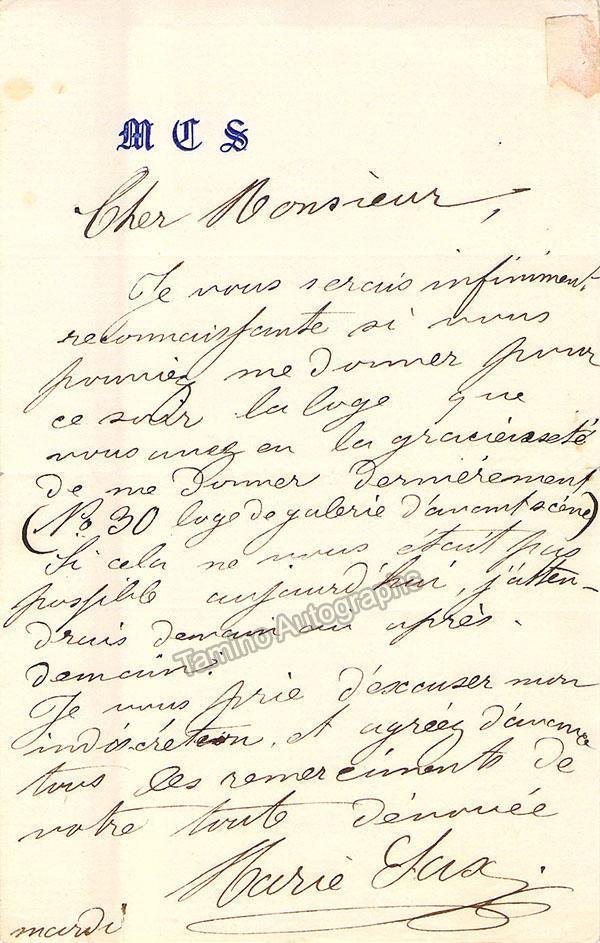 M C S
Cher Monsieur,
Je vous serais infiniment
reconnaissante si vous
pouviez me donner pour
ce soir la loge que
vous avez eu la gracieuseté
de me donner dernièrement
(No 30 loge de galerie d'avant scène)
Si cela ne vous était pas
possible aujourd'hui, j'atten-
drais demain ou après-
demain.
Je vous prie d'excuser mon
indiscrétion, et agréez d'avance
tous les remerciments de
votre toute dévouée
Marie Sax
mardi
Tamino Autographs